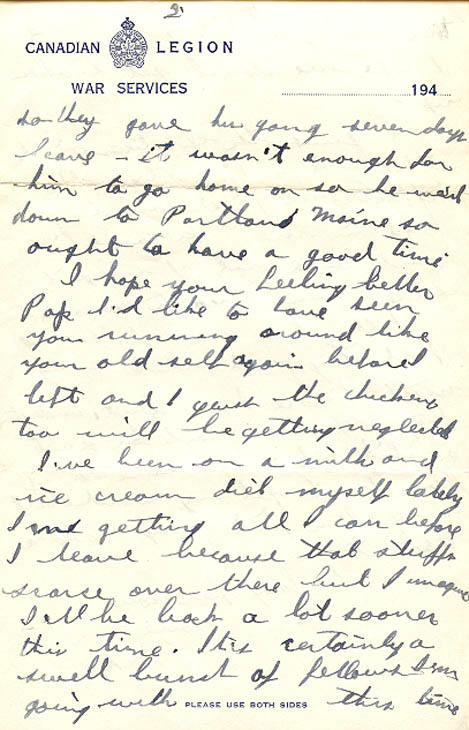 2
CANADIAN LEGION
WAR SERVICES
194
so they gave his gang seven days
leave - it wasn't enough for
him to go home on so he went
down to Portland Maine so
ought to have a good time
I hope your feeling better
Pop I'd like to have seen
you running around like
your old self again before I
left and I guess the chickens
too will be getting neglected
I've been on a milk and
ice cream diet myself lately
I'm getting all I can before
I leave because that stuffs
scarse over there but I imagine
I'll be back a lot sooner
this time. It's certainly a
swell bunch of fellows I'm
going with this time
PLEASE USE BOTH SIDES